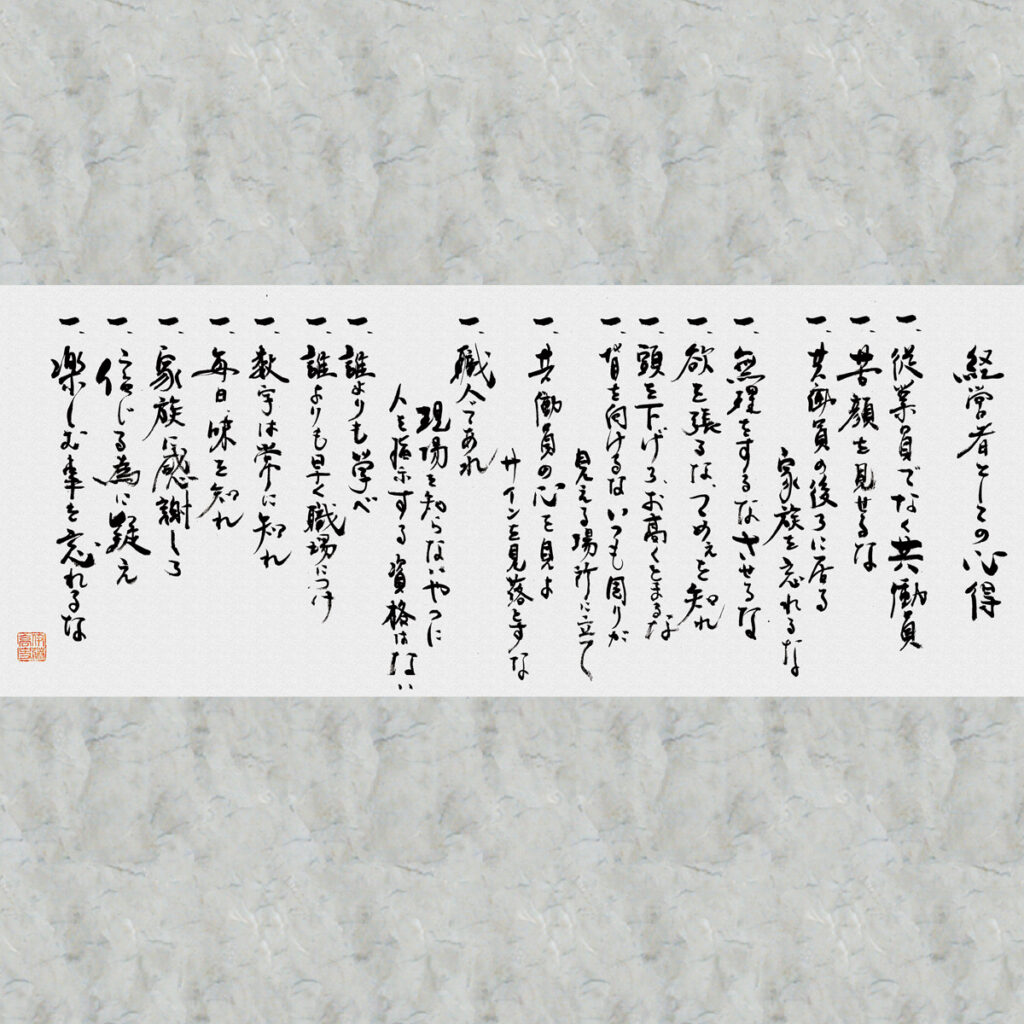 経営者としての心得
一、従業員でなく共働員
一、苦顔を見せるな
一、共働員の後ろに居る
家族を忘れるな
一、無理をするな、させるな
一、欲を張るな、つめを知れ
一、頭を下げろ、お高くとまるな
一、背を向けるないつも周りが
見える場所に立て
一、共働員の心を見よ
サインを見落とすな
一、職人であれ
現場を知らないやつに
人を指示する資格はない
一、誰よりも学べ
一、誰よりも早く職場につけ
一、数字は常に知れ
一、毎日、味を知れ
一、家族に感謝しろ
一、信じる為に疑え
一、楽しむ事を忘れるな